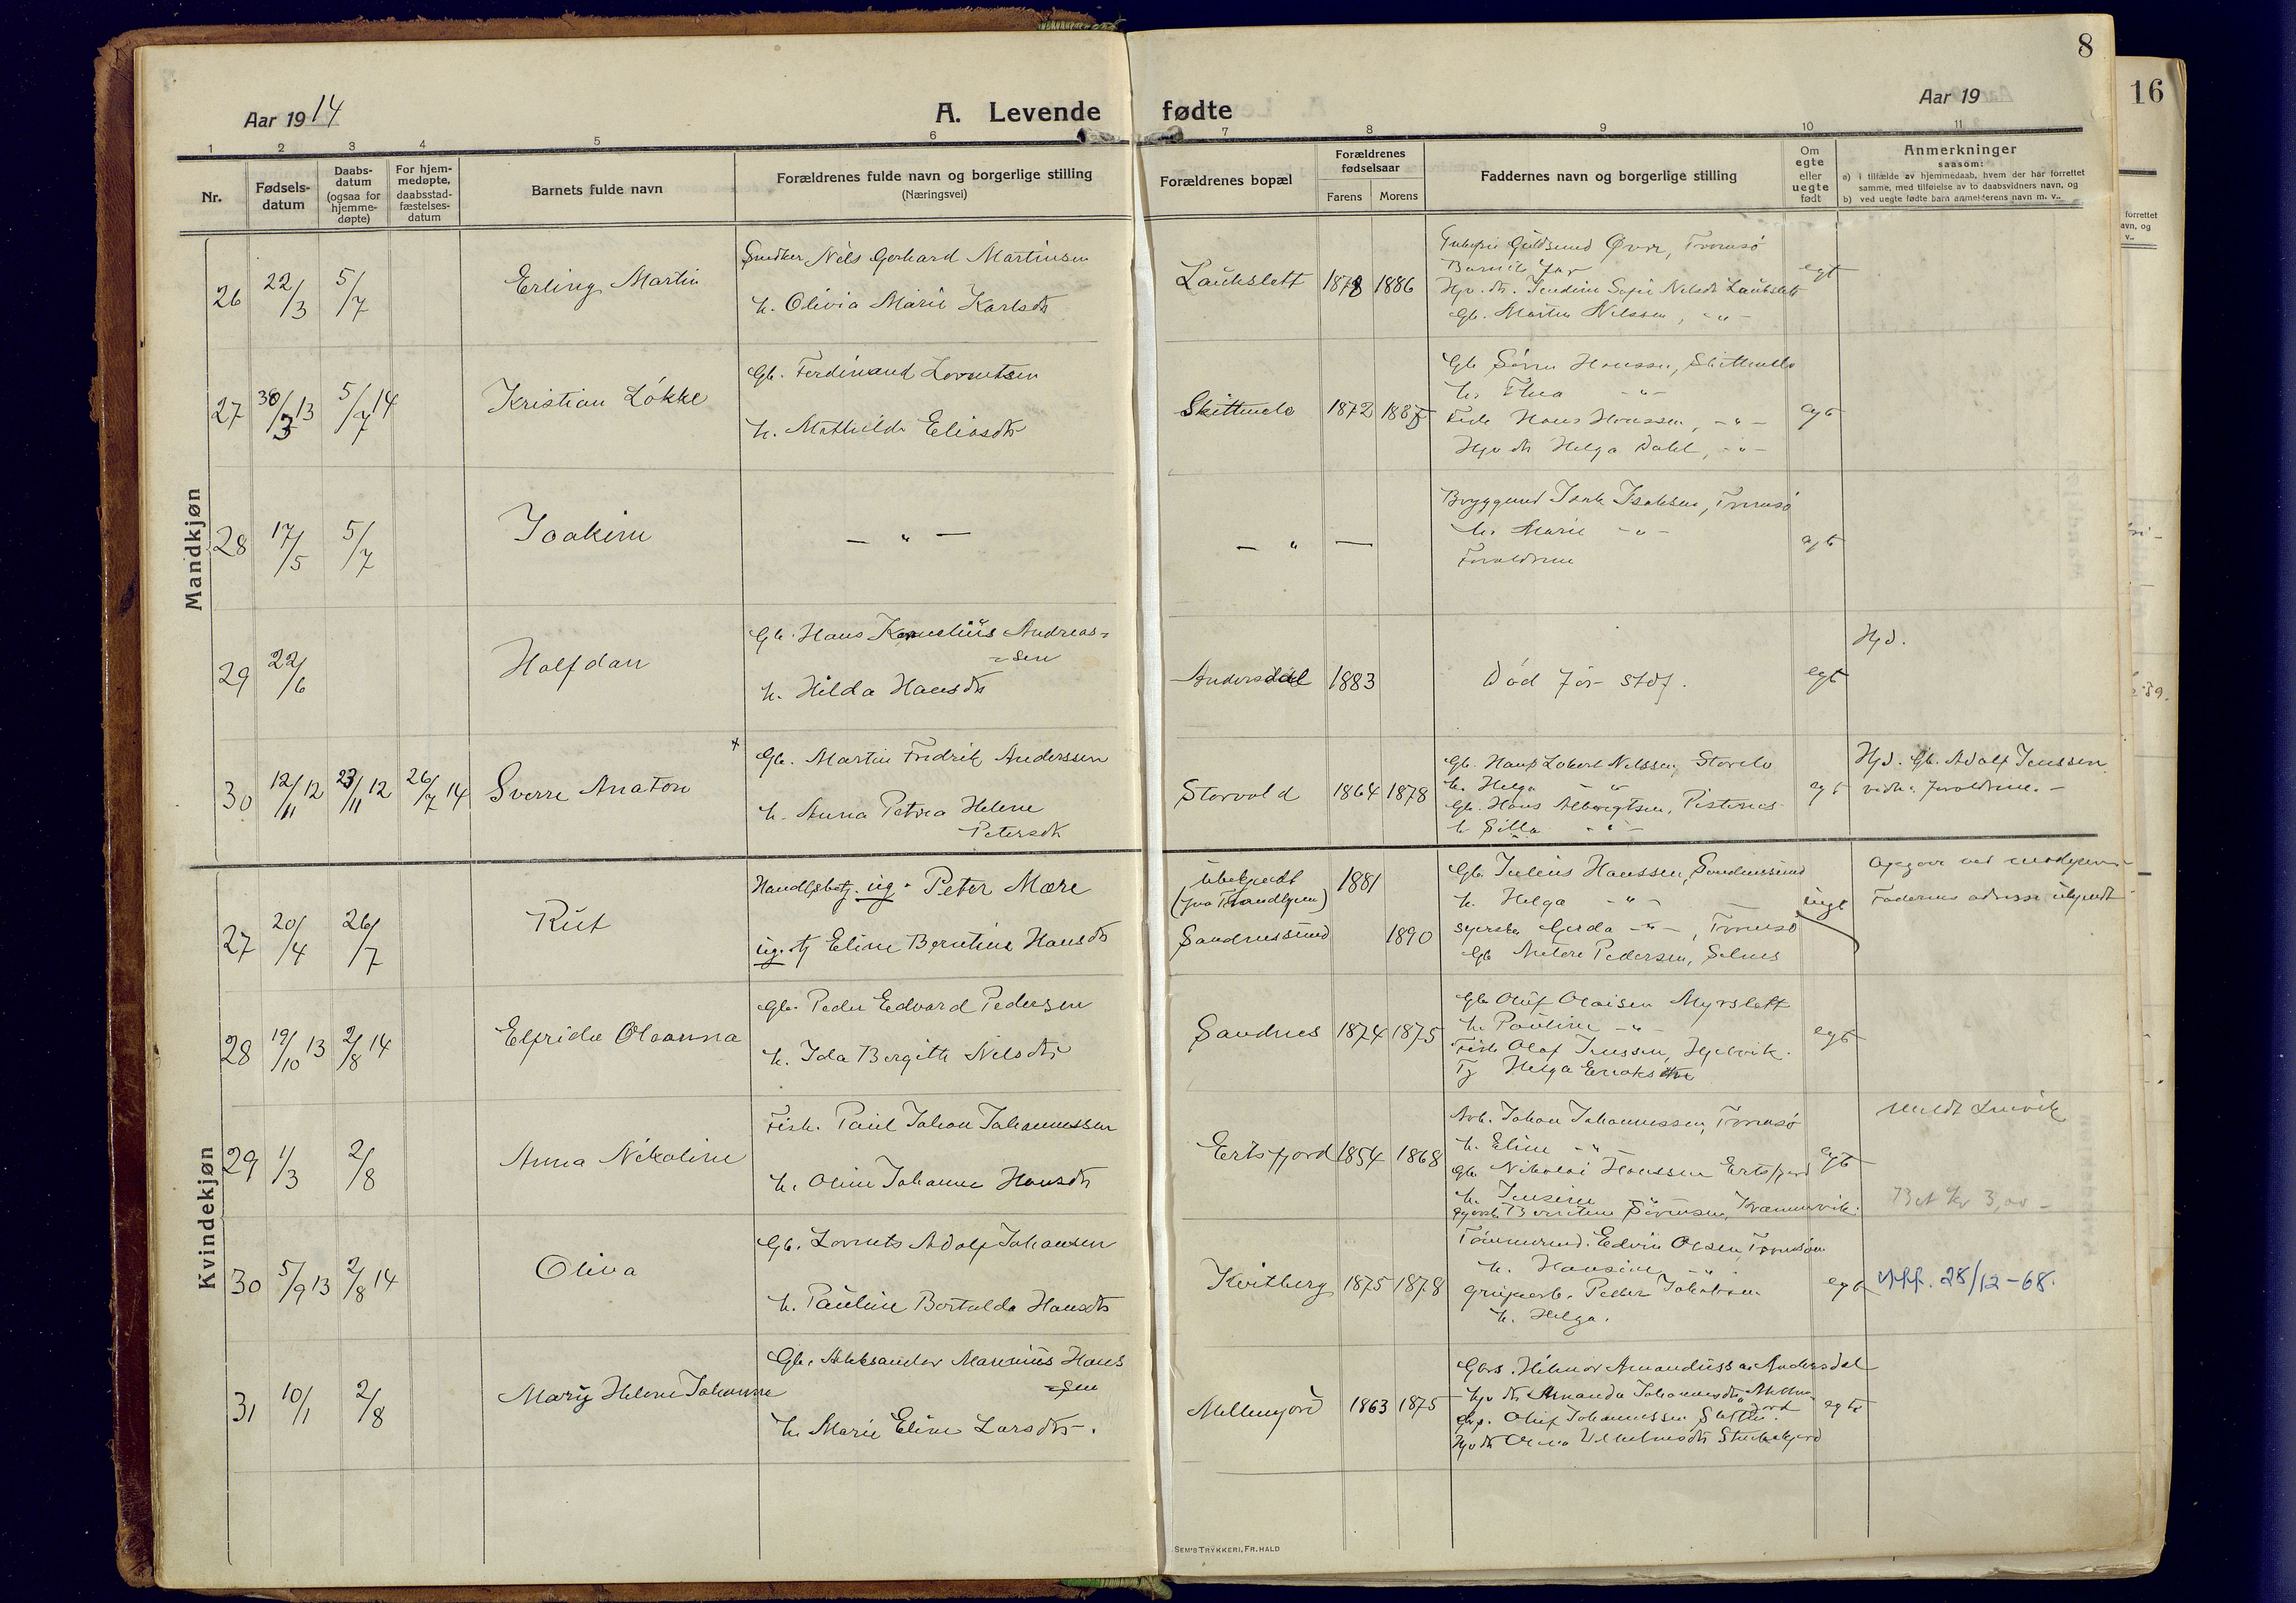 8
16
Aar 1914
A. Levende fødte
Aar 19
1 2 3 4 5 6 7 8 9 10 11
Nr.
Fødsels-datum
Daabs-datum (ogsaa for hjemme-døpte)
For hjem-medøpte, daabsstad-fæstelses-datum
Barnets fulde navn
Forældrenes fulde navn og borgerlige stilling
(Næringsvei)
Forældrenes bopæl
Forældrenes fødselsaar
Farens Morens
Faddernes navn og borgerlige stilling
Om egte eller uegte født
Anmerkninger
saasom:
a) i tilfælde av hjemmedaab, hvem der har forrettet
samme, med tilføielse av to daabsvidners navn, og
b) ved uegte fødte barn anmelderens navn m. v..
forrettet
avn, og
v..
Mandkjøn
26 22/3 5/7 Erling Martin
Snedker Nils Gerhard Martinsen
h. Olivia Marie Karlsdtr
Laukslett 1878 1886
Øvre, Tromsø
Barnets far
Nilsdtr Laukslett
Gb. Martin Nilssen, - " -
egt
27 30/3 13 5/7 14 Kristian Løkke
Gb. Ferdinand Lorentsen
h. Mathilde Eliasdtr
Skittenelv 1872 1885
Gb Søren Hanssen, Skittenelv
h. Thea - " -
Fisk Hans Hanssen, - " -
Hjv dtr Helga Dahl, - " -
egt
28 17/5 5/7 Joakim
— " —
— " —
Bryggemd Isak Isaksen, Tromsø
h. Marie - " -
Forældrene
egt
29 22/6 Halfdan
Gb. Hans Kornelius Andreas=
=sen
h. Hilda Hansdtr
Andersdal 1883
Død før stdf.
egt
Hjd.
30 12/11 12 23/11 12 26/7 14 Sverre Anaton
Gb. Martin Fredrik Anderssen
h. Anna Petrea Helene
Petersdtr
Storvold 1864 1878
Gb. Hans Labert Nilssen, Storelv
h. Helga - " -
Gb. Hans Albrigtsen, Pistenes
h Silla - " -
egt
Hjd. Gb. Adolf Jenssen
vidn. forældrene. -
Kvindekjøn
27 20/4 26/7 Rut
Handelsbetj. ug. Peter Mære
ug. tj Eline Berntine Hansdtr
Ubekjendt 1881
(fra Trondhjem)
Sandnessund 1890
Gb Julius Hanssen, Sandnessund
h. Helga - " -
syerske Gerda - " -, Tromsø
Gb Meteor Pedersen, Selnes
uegt
Opgave ved
Faderens adresse ukjendt
28 19/10 13 2/8 14 Elfrida Oleanna
Gb. Peder Edvard Pedersen
h. Ida Bergitte Nilsdtr
Sandnes 1874 1875
Gb Oluf Olaisen Myrslett
h. Pauline - " -
Fisk Olaf Jenssen, Hjelvik.
Tj Helga Eriksdtr
egt
29 1/3 2/8 Anna Nikoline
Fisk. Paul Johan Johannessen
h. Oline Johanne Hansdtr
Ertsfjord 1854 1868
Arb. Johan Johannessen, Tromsø
h. Eline - " -
Gb Nikolai Hanssen Ertsfjord
h. Jensine - " -
Berntine Sørensen,
egt
Meldt Lenvik
Bet kr 3,00 -
30 5/9 13 2/8 14 Oliva
Gb. Lorents Adolf Johansen
h. Pauline Bertulda Hansdtr
Kvitberg 1875 1878
Tømmermd. Edvin Olsen,
h. Hansine - " -
Peder Jakobsen
h. Helga.
egt
Utf. 28/12-68.
31 10/1 2/8 Mary Helene Johanne
Gb. Aleksander Marenius Hans
=sen
h. Marie Eline Larsdtr.
Mellemjord 1863 1875
Gbrs. Hilmar Amandussen Andersdal
Hjv dtr Amanda Johannesdtr, Mellem-
jord
Oluf Johannessen
Hjv dtr Vilhelmsdtr
egte
SEM'S TRYKKERI, FR. HALD